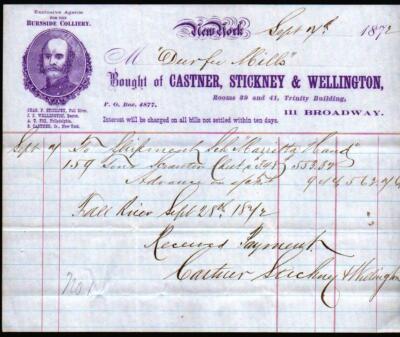 Exclusive Agents
FOR THE
BURNSIDE COLLIERY.
CHAS. F. STICKNEY, Fall River.
C. S. WELLINGTON, Boston.
A. T. FOX, Philadelphia.
S. CASTNER, Jr., New York.
New York Sept 1872
M "Durfee Mills"
Bought of CASTNER, STICKNEY & WELLINGTON,
P. O. Box, 4877.
Rooms 39 and 41, Trinity Building,
111 BROADWAY.
Interest will be charged on all bills not settled within ten days.
Sept To Shipment Sch "Harriett Hand"
159 Tons Scranton 553.32
Advance on 562.76
Fall River Sept 28th 1872
Received Payment
Castner Stickney & Wellington
No. 1